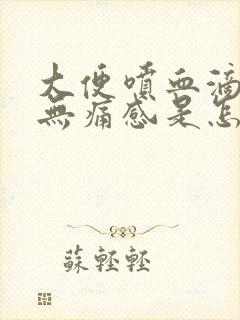 大便噴血滴
無痛感是怎
蘇輕輕